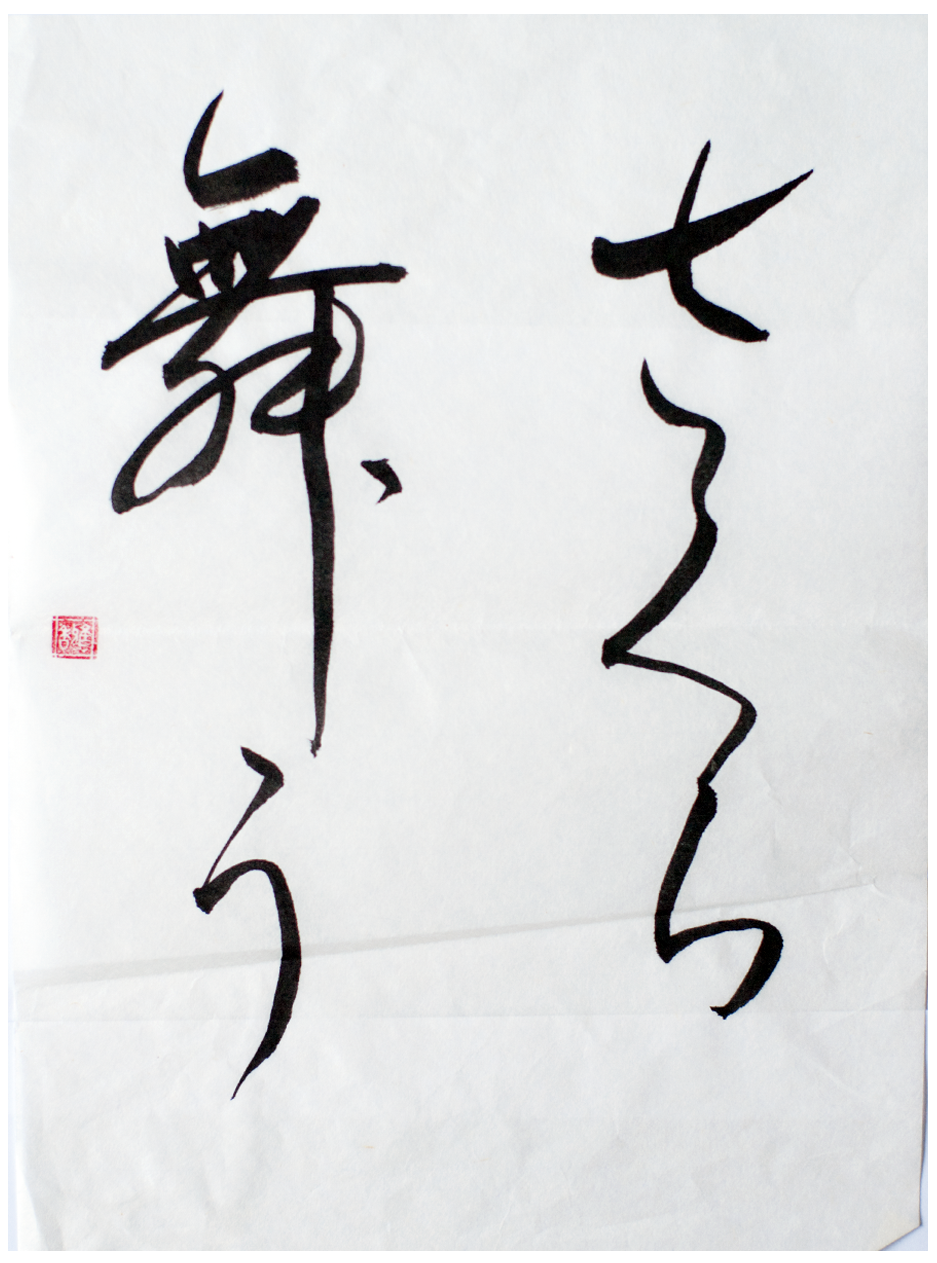 さくら
舞う